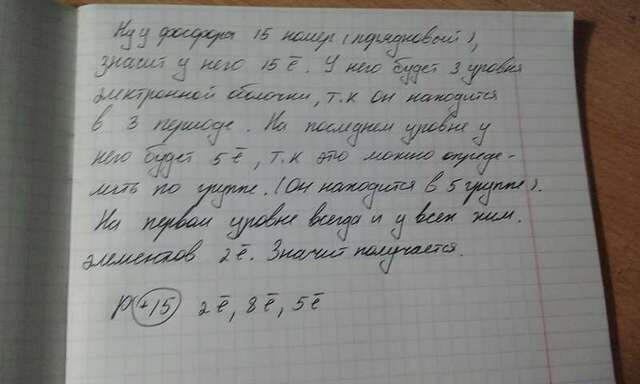 Ну у фосфора 15 номер (порядковый),
значит у него 15 ē. У него будет 3 уровня
электронной оболочки, т.к он находится
в 3 периоде. На последнем уровне у
него будет 5 ē, т.к это можно опреде-
лить по группе. (Он находится в 5 группе).
На первом уровне всегда и у всех хим.
элементов 2 ē. Значит получается.
P +15 2 ē, 8 ē, 5 ē